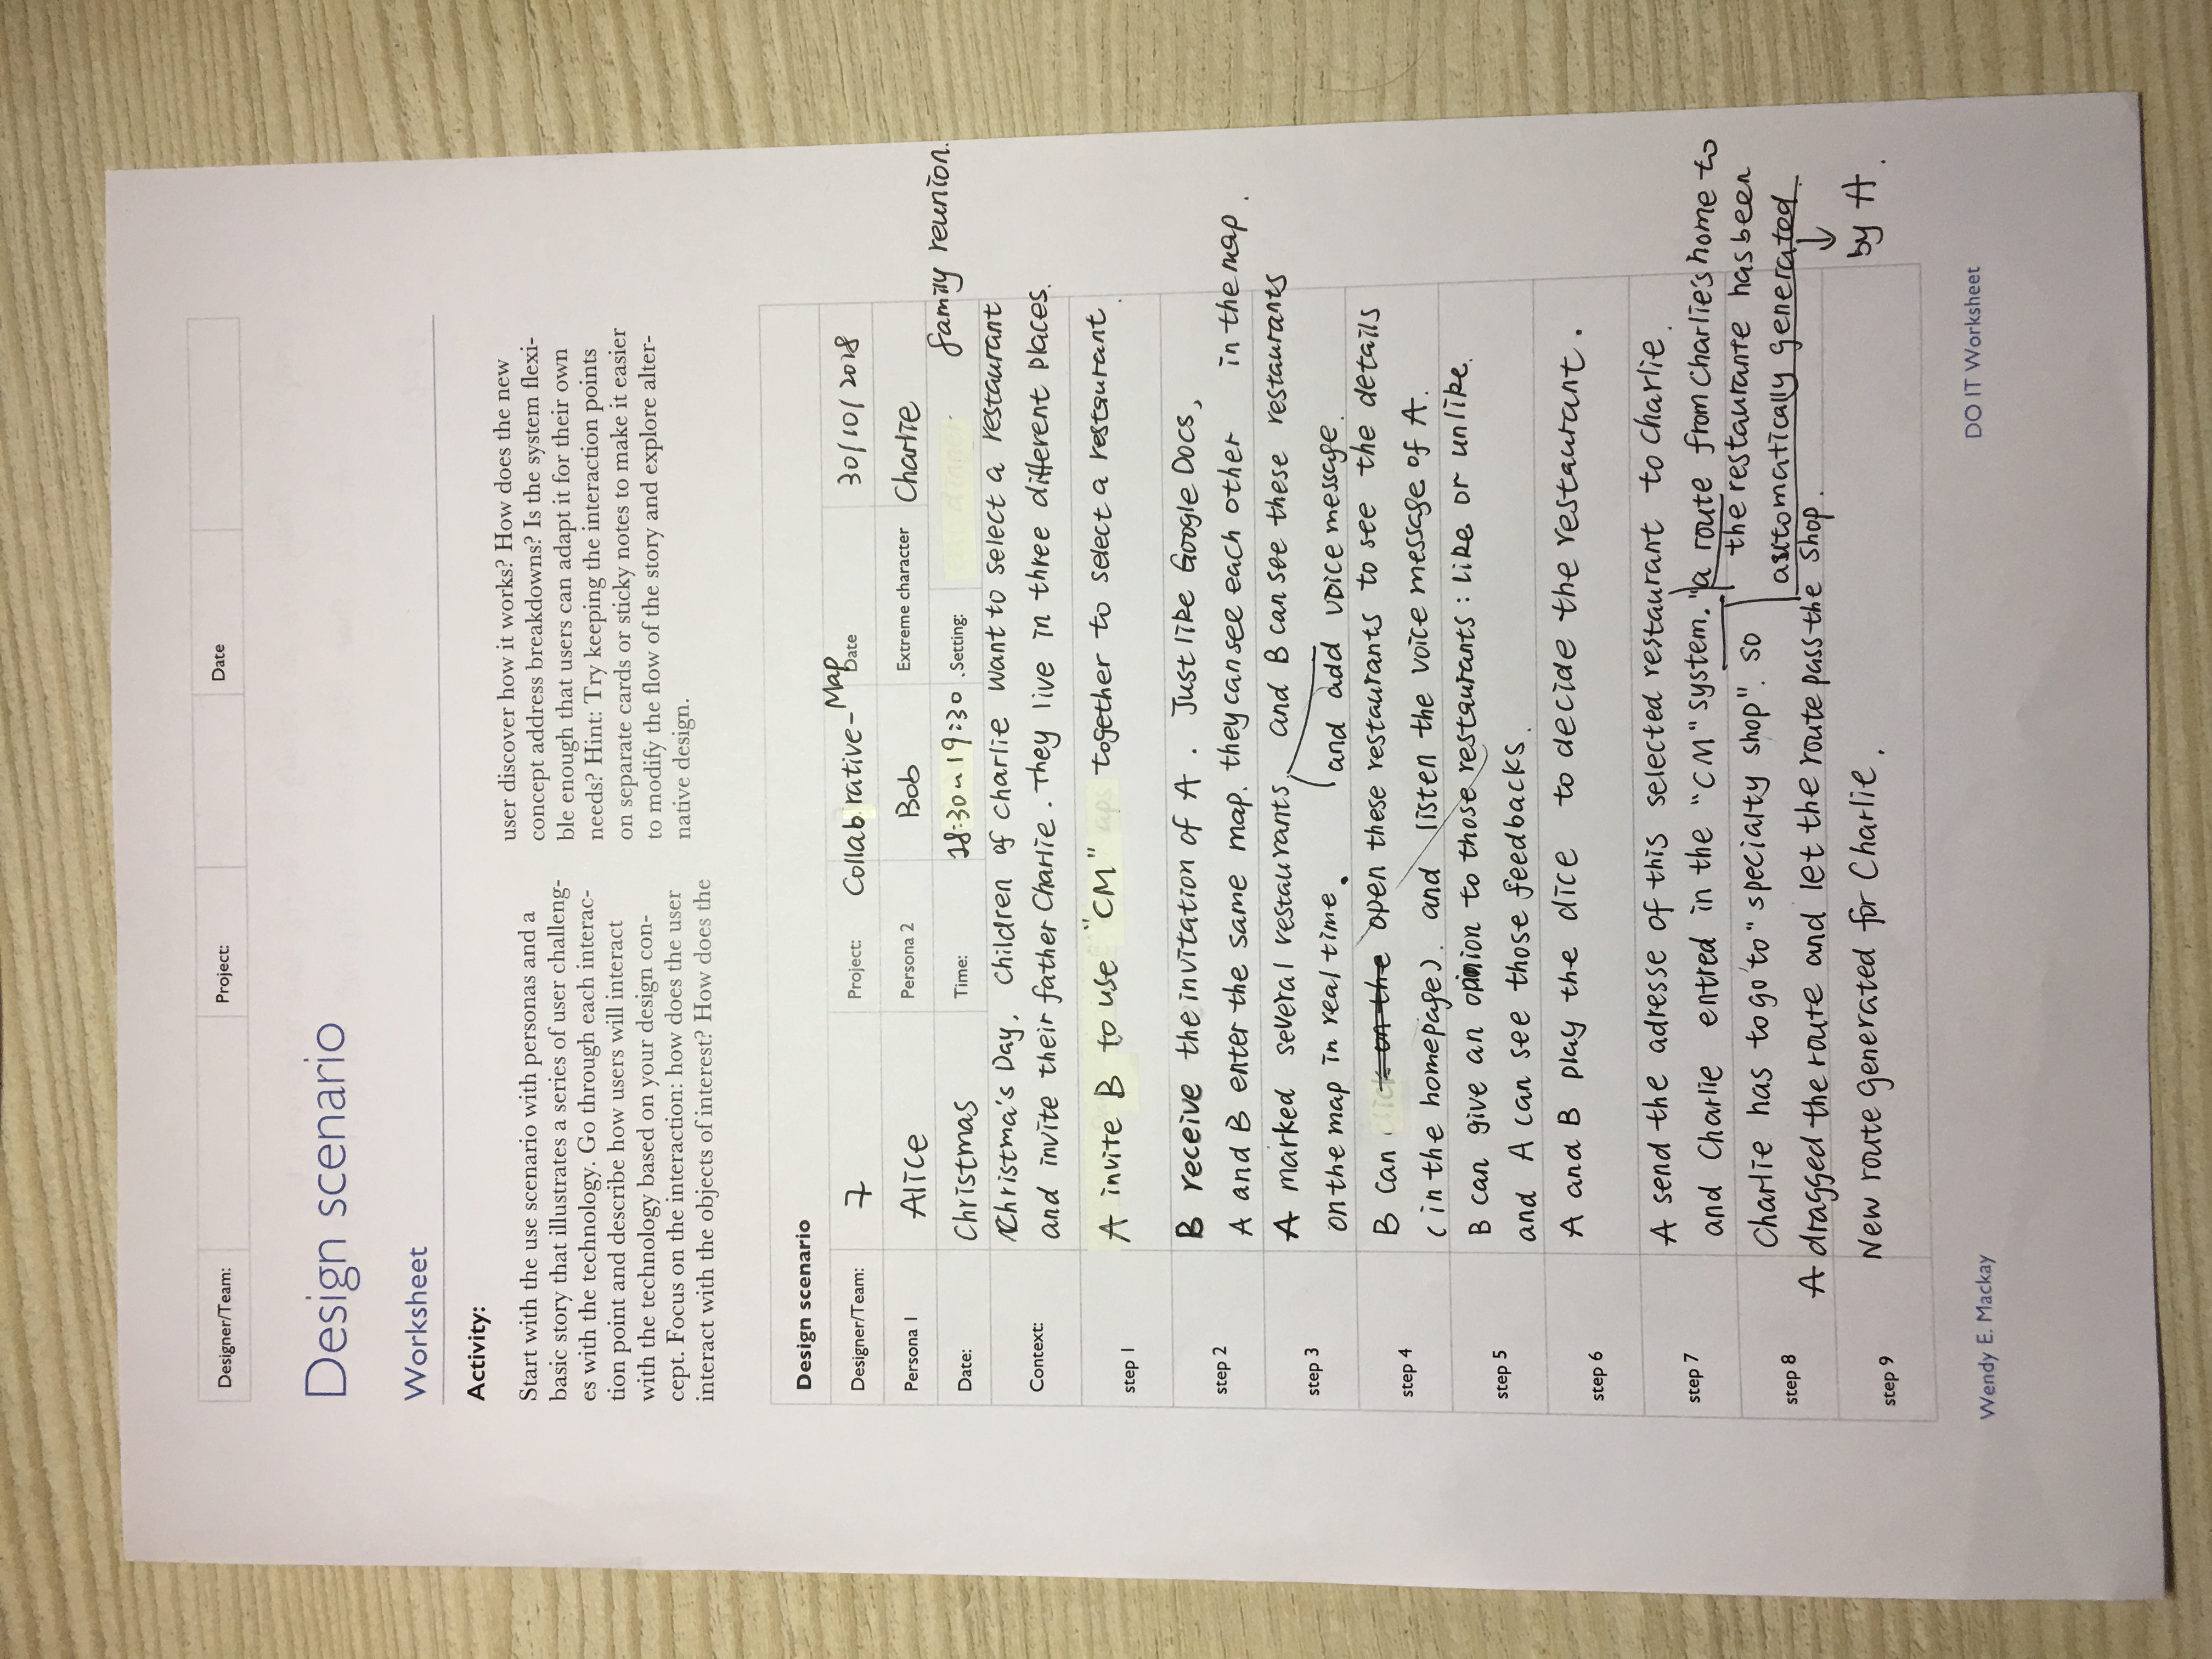 Designer/Team: Project: Date
Design scenario
Worksheet
Activity:
Start with the use scenario with personas and a
basic story that illustrates a series of user challeng-
es with the technology. Go through each interac-
tion point and describe how users will interact
with the technology based on your design con-
cept. Focus on the interaction: how does the user
interact with the objects of interest? How does the
user discover how it works? How does the new
concept address breakdowns? Is the system flexi-
ble enough that users can adapt it for their own
needs? Hint: Try keeping the interaction points
on separate cards or sticky notes to make it easier
to modify the flow of the story and explore alter-
native design.
Design scenario
Designer/Team: 7 Project: Collab rative-Map Date 30/10/2018
Persona 1 Alice Persona 2 Bob Extreme character Charlie
Date: Christmas Time: 18:30~19:30 Setting: family reunion.
Context: Christma's Day, Children of charlie want to select a restaurant
and invite their father Charlie. They live in three different places.
step 1 A invite B to use "CM" together to select a restaurant
step 2 B receive the invitation of A. Just like Google Docs,
A and B enter the same map. they can see each other in the map.
step 3 A marked several restaurants, and B can see these restaurants
on the map in real time. and add voice message.
step 4 B can on the open these restaurants to see the details
(in the homepage). and listen the voice message of A.
step 5 B can give an opinion to those restaurants: like or unlike.
and A can see those feedbacks.
step 6 A and B play the dice to decide the restaurant.
step 7 A send the adresse of this selected restaurant to Charlie.
and Charlie entred in the "CM" system. "a route from Charlie's home to
the restaurante has been
automatically generated
by A.
step 8 Charlie has to go to "specialty shop". so
A dragged the route and let the route pass the shop.
step 9 New route generated for Charlie.
Wendy E. Mackay DO IT Worksheet